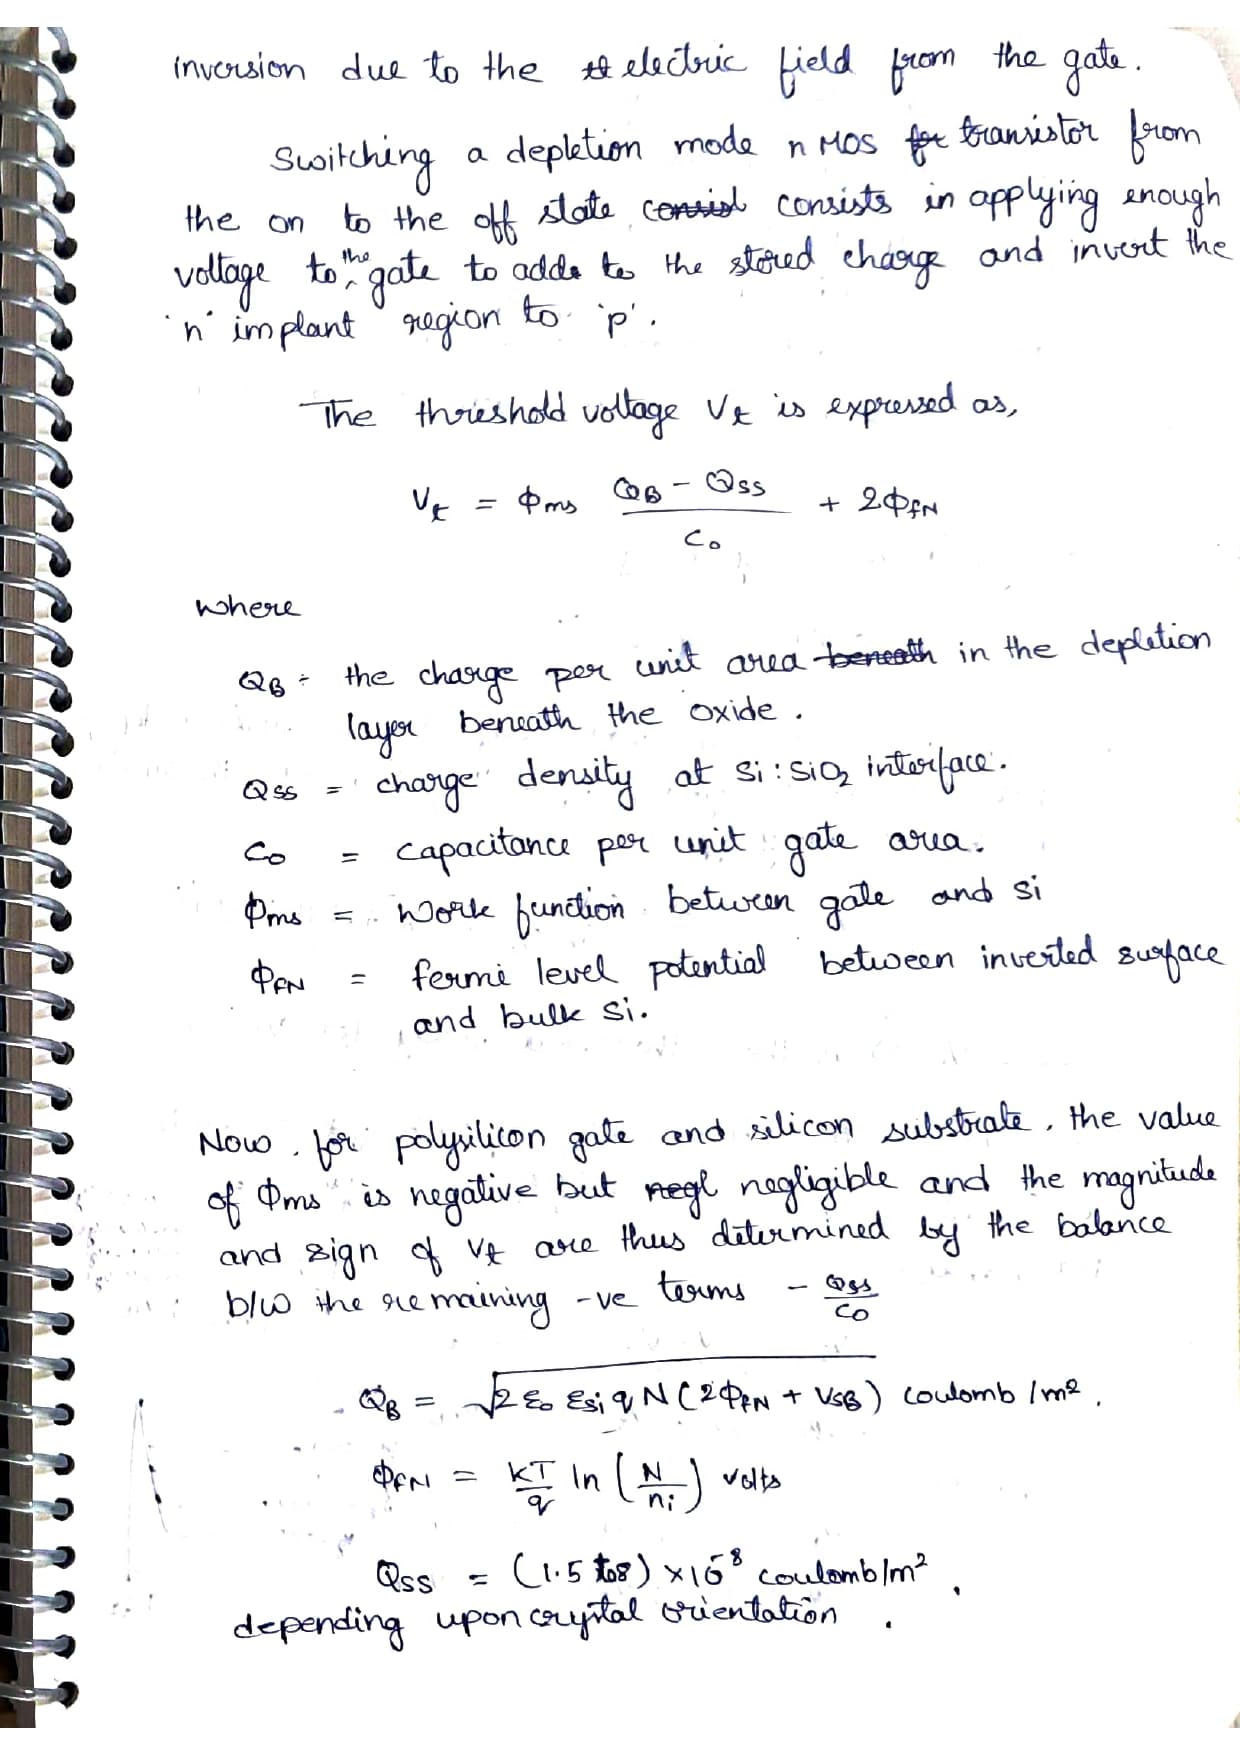 inversion due to the electric field from the gate.
Switching a depletion mode nMOS transistor from
the on to the off state consists in applying enough
voltage to the gate to adds to the stored charge and invert the
'n' implant region to 'p'.
The threshold voltage Vt is expressed as,
Vt = Φms (QB - QSS)/C0 + 2ΦfN
where
QB = the charge per unit area in the depletion
layer beneath the oxide.
QSS = charge density at Si:SiO2 interface.
C0 = capacitance per unit gate area.
Φms = work function between gate and Si
ΦfN = fermi level potential between inverted surface
and bulk Si.
Now, for polysilicon gate and silicon substrate, the value
of Φms is negative but negligible and the magnitude
and sign of Vt are thus determined by the balance
b/w the remaining -ve terms - Qss/C0
QB = √(2 ε0 εSi q N (2ΦfN + VSB)) coulomb/m².
ΦfN = kT/q ln (N/ni) volts
QSS = (1.5 to 8) × 10⁻⁸ coulomb/m²,
depending upon crystal orientation.